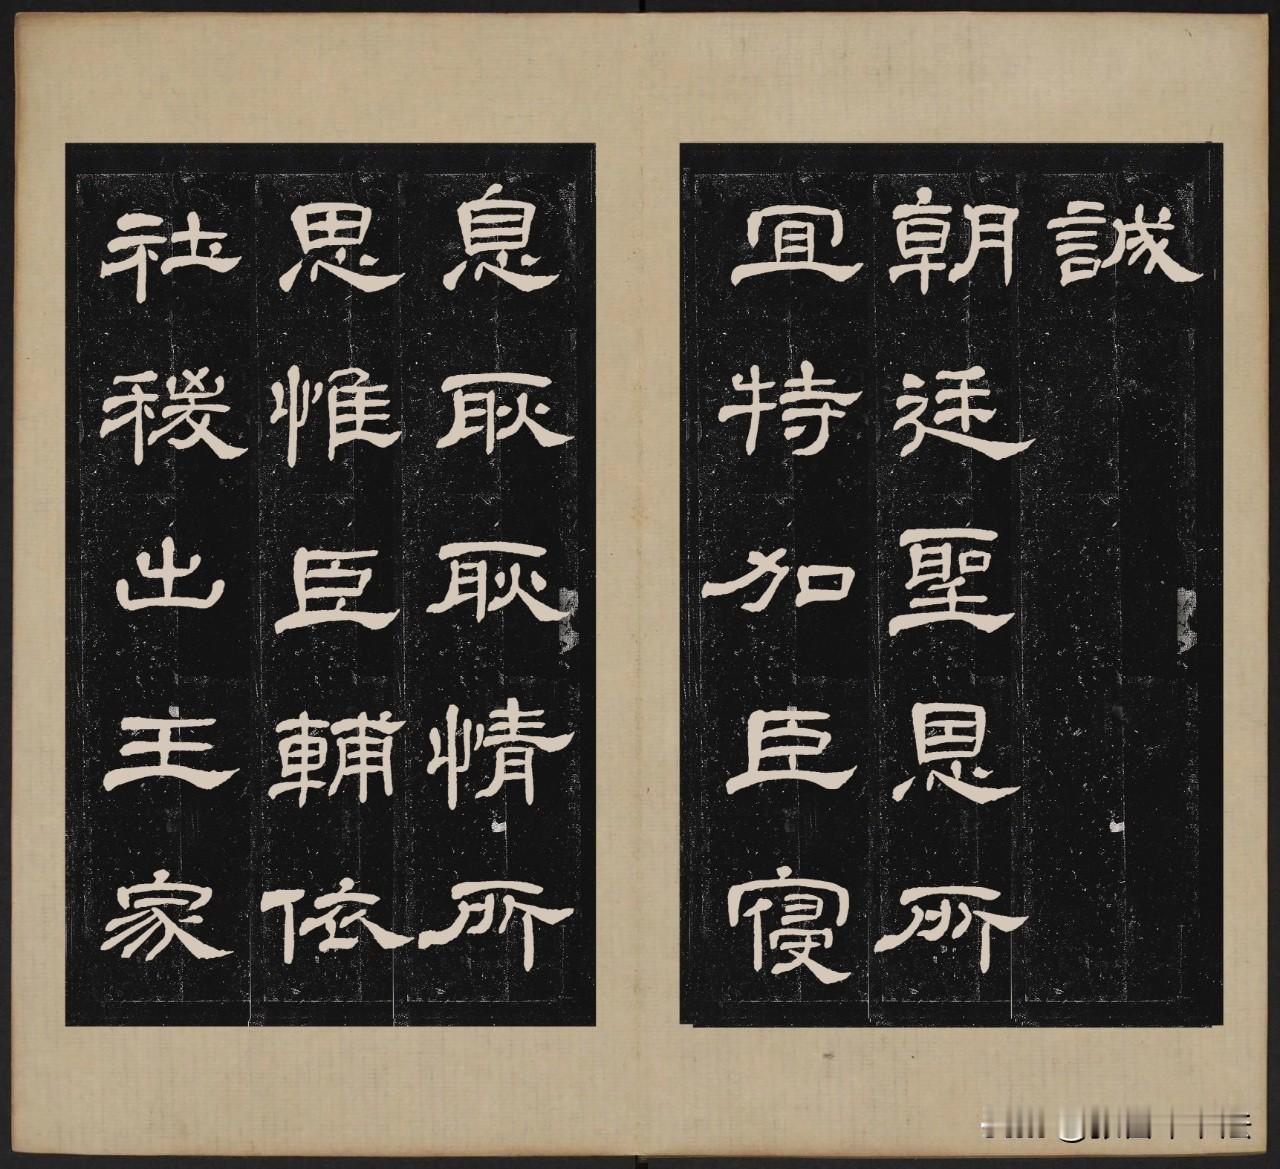 誠
朝廷聖恩所
宜特加臣寑
息耿耿情所
思惟臣輔依
社稷出王家